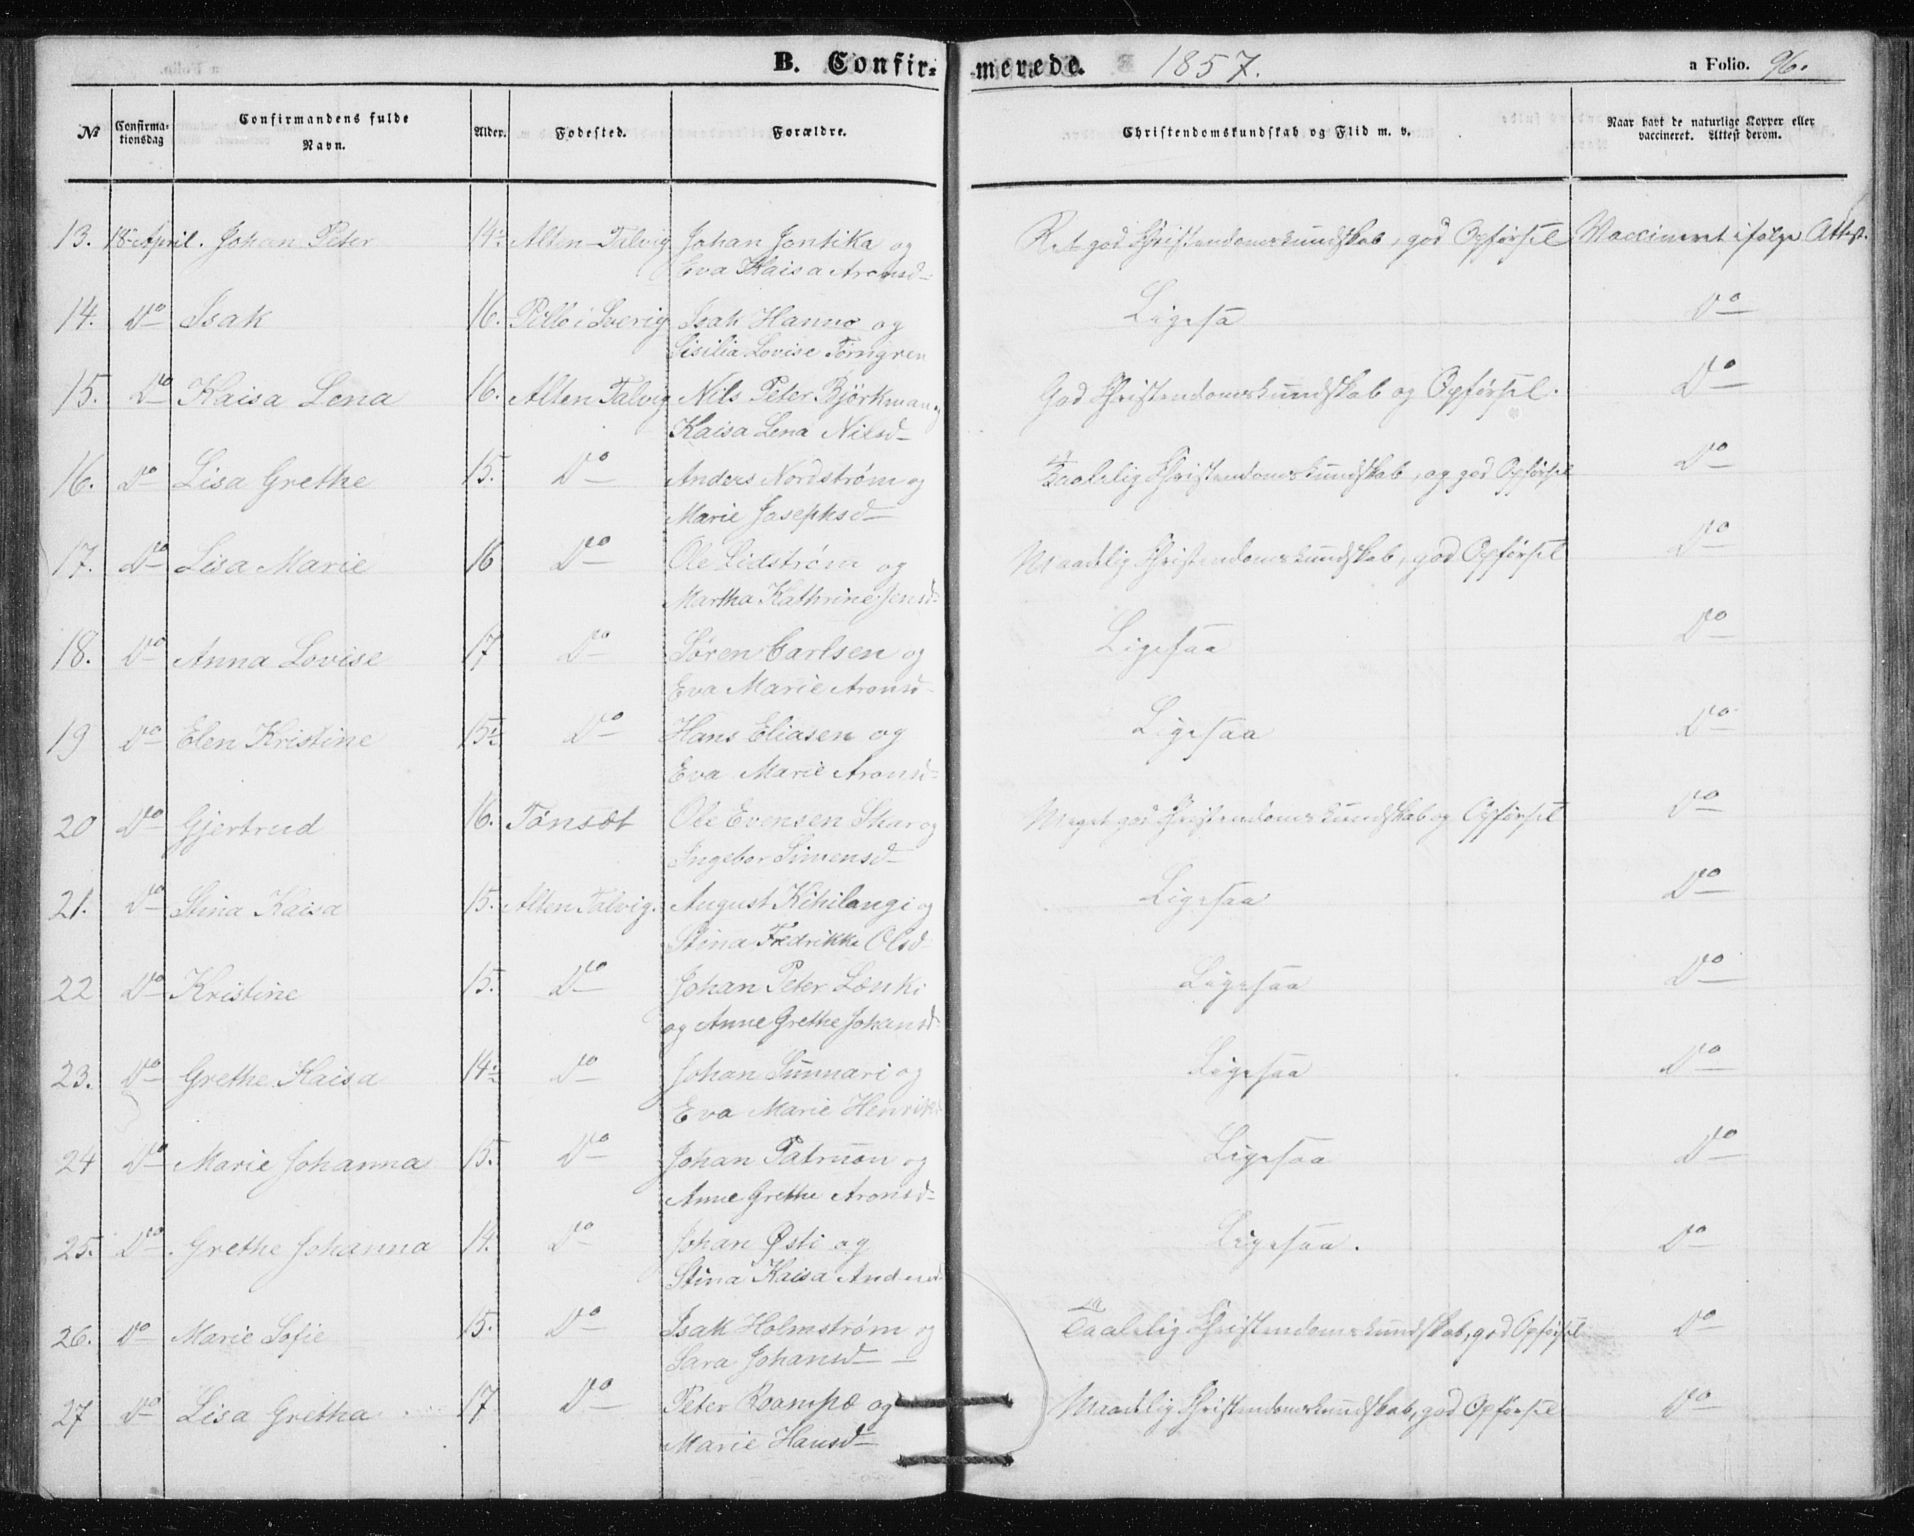 B. Confir- merede. 1857. a Folio. 96.
No Confirma-tionsdag Confirmandens fulde Navn. Alder. Fødested. Forældre. Christendomskundskab og Flid m. v. Naar havt de naturlige Kopper eller vaccineret. Attest derom.
13. 18de April. Johan Peter 14½ Alten-Talvig Johan Jontika og Ret god Christendomskundskab, god Opførsel Vaccineret ifølge Attest.
Eva Kaisa Aronsd-
14. Do Isak 16. Pello i Sverig Isak Hanno og Ligesa Do
Sisilia Lovise Törngren
15. Do Kaisa Lena 16. Alten Talvig Nils Peter Björkman og God Christendomskundskab og Opførsel. Do
Kaisa Lena Nilsd-
16. Do Lisa Grethe 15. Do Anders Nordstrøm og Taalelig Christendomskundskab, og god Opførsel Do
Marie Josephsd-
17. Do Lisa Marie 16 Do Ole Lidstrøm og Maadelig Christendomskundskab, god Opførsel Do
Martha Kathrine Jensd-
18. Do Anna Lovise 17 Do Søren Carlsen og Ligesaa Do
Eva Marie Aronsd-
19 Do Elen Kristine 15½ Do Hans Eliasen og Ligesaa Do
Eva Marie Aronsd-
20 Do Gjertrud 16. Tønset Ole Evensen Skar og Meget god Christendomskundskab og Opførsel Do
Ingebor Simensd-
21. Do Stina Kaisa 15. Alten Talvig. August Kihilangi og Ligesaa Do
Stina Fredrikke Olsd-
22 Do Kristine 15. Do Johan Peter Lænki Ligesaa Do
og Anne Grethe Johansd-
23. Do Grethe Kaisa 14½ Do Johan Sunnari og Ligesaa Do
Eva Marie Henriks
24 Do Marie Johanna 15. Do Johan Patruon og Ligesaa Do
Anne Grethe Aronsd-
25. Do. Grethe Johanna 14. Do Johan Østi og Ligesaa. Do
Stina Kaisa Andersd-
26. Do Marie Sofie 15. Do Isak Holmstrøm og Taalelig Christendomskundskab, god Opførsel Do
Sara Johansd-
27 Do Lisa Gretha 17 Do Peter Roampæ og Maadelig Christendomskundskab, god Opførsel Do
Marie Hansd-